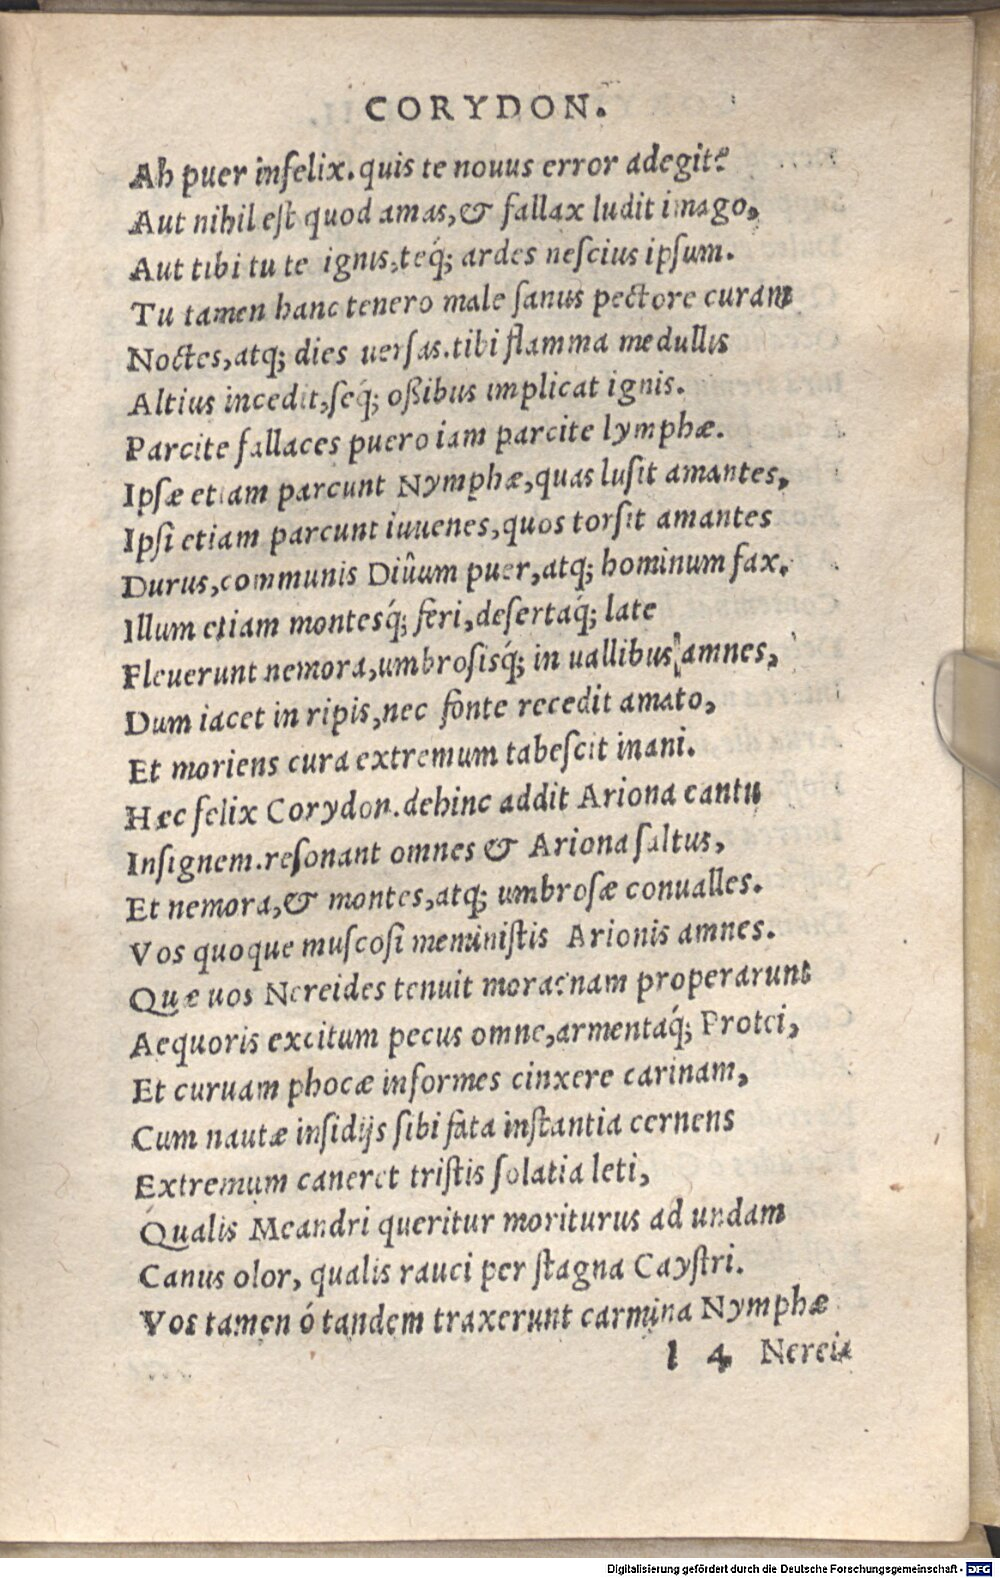 CORYDON.
Ah puer infelix. quis te nouus error adegit?
Aut nihil est quod amas, & fallax ludit imago,
Aut tibi tu te ignis, teq́; ardes nescius ipsum.
Tu tamen hanc tenero male sanus pectore curam
Noctes, atq; dies uersas. tibi flamma medullis
Altius incedit, seq́; oßibus implicat ignis.
Parcite fallaces puero iam parcite lymphæ.
Ipsæ etiam parcunt Nymphæ, quas lusit amantes,
Ipsi etiam parcunt iuuenes, quos torsit amantes
Durus, communis Diûum puer, atq; hominum fax.
Illum etiam montesq́; feri, desertaq́; late
Fleuerunt nemora, umbrosisq́; in uallibus amnes,
Dum iacet in ripis, nec fonte recedit amato,
Et moriens cura extremum tabescit inani.
Hæc felix Corydon. dehinc addit Ariona cantu
Insignem. resonant omnes & Ariona saltus,
Et nemora, & montes, atq; umbrosæ conualles.
Vos quoque muscosi meministis Arionis amnes.
Quæ uos Nereides tenuit mora? nam properarunt
Aequoris excitum pecus omne, armentaq́; Protei,
Et curuam phocæ informes cinxere carinam,
Cum nautæ insidijs sibi fata instantia cernens
Extremum caneret tristis solatia leti,
Qualis Meandri queritur moriturus ad undam
Canus olor, qualis rauci per stagna Caystri.
Vos tamen ó tandem traxerunt carmina Nymphæ
l 4 Nerei-
Digitalisierung gefördert durch die Deutsche Forschungsgemeinschaft - DFG